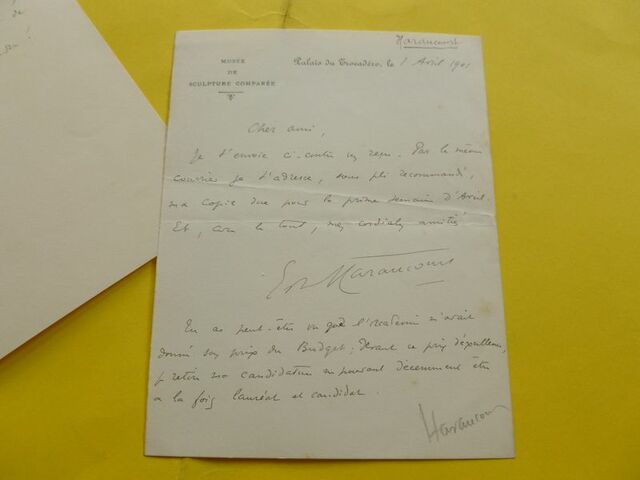 Haraucourt
MUSÉE
DE
SCULPTURE COMPARÉE
Palais du Trocadéro, le 1 Avril 1901
Cher ami,
Je t'envoie ci-contre un reçu. Par le même
courrier je t'adresse, sous pli recommandé,
ma copie due pour la première semaine d'Avril.
Et, avec le tout, mes cordiales amitiés
Edm Haraucourt
Tu as peut-être vu que l'Académie m'avait
donné son prix du Budget; devant ce prix
je retire ma candidature ne pouvant décemment être
à la fois lauréat et candidat.
Haraucourt